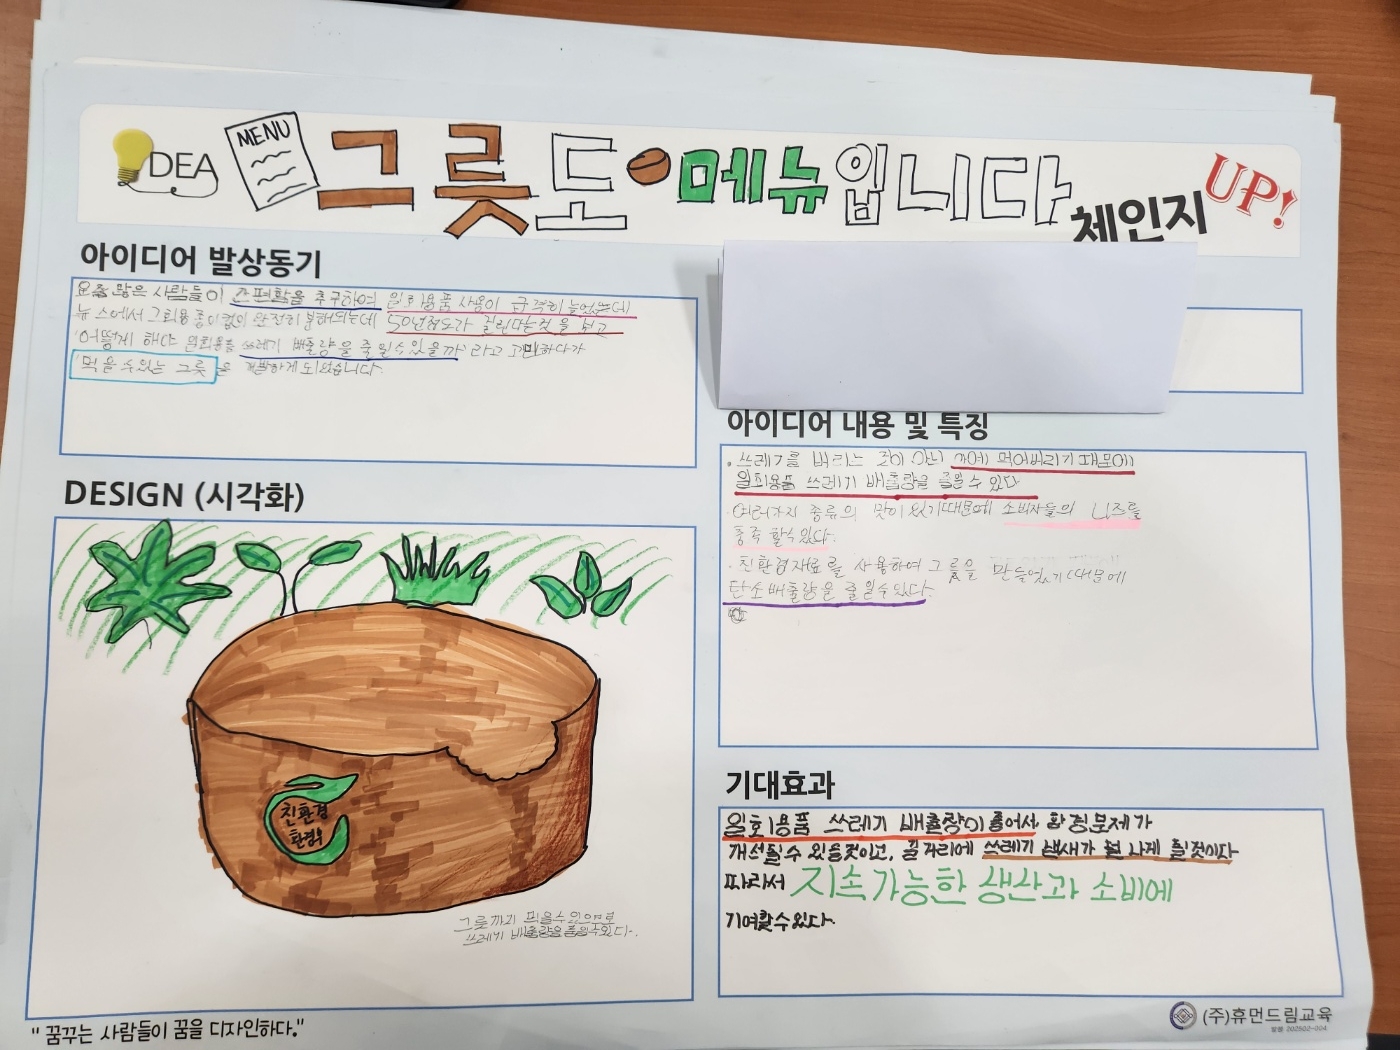 IDEA
MENU
그릇도 메뉴입니다
체인지
UP!
아이디어 발상동기
요즘 많은 사람들이 간편함을 추구하여 일회용품 사용이 급격히 늘었는데
뉴스에서 일회용 종이컵이 완전히 분해되는데 50년정도가 걸린다는 것을 보고
'어떻게 해야 일회용품 쓰레기 배출량을 줄일수있을까'라고 고민하다가
'먹을 수 있는 그릇'을 개발하게 되었습니다.
DESIGN (시각화)
친환경
그릇까지 먹을수 있으므로
쓰레기 배출량을 줄일수있다.
아이디어 내용 및 특징
· 쓰레기를 버리는 것이 아닌 먹어버리기 때문에
일회용품 쓰레기 배출량을 줄일 수 있다
· 여러가지 종류의 맛이 있기때문에 소비자들의 니즈를
충족 할수있다.
· 친환경재료를 사용하여 그릇을 만들었기때문에
탄소배출량을 줄일수있다.
기대효과
일회용품 쓰레기 배출량이 줄어서 환경문제가
개선될수 있을것이고, 길거리에 쓰레기 냄새가 덜 나게 될것이다
따라서 지속가능한 생산과 소비에
기여할수있다.
" 꿈꾸는 사람들이 꿈을 디자인하다."
(주)휴먼드림교육